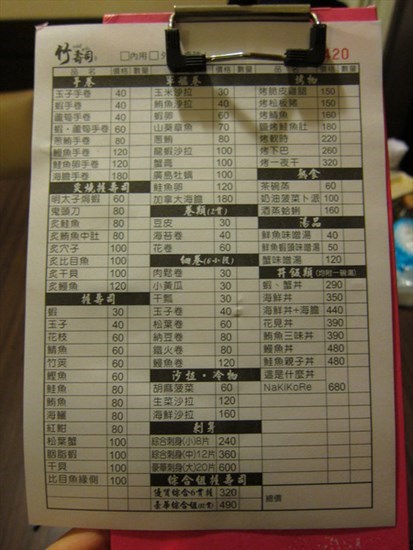 竹壽司
□內用 420
品名 價格 數量
手卷
玉子手卷 40
蝦手卷 40
蘆筍手卷 40
蝦、蘆筍手卷 60
蔥鮪手卷 80
鰻魚手卷 120
鮭魚卵手卷 120
海膽手卷 180
炙燒握壽司
明太子焗蝦 60
鬼頭刀 80
炙鮭魚 80
炙鮪魚中肚 80
炙穴子 100
炙比目魚 100
炙干貝 100
炙鰻魚 120
握壽司
蝦 30
玉子 40
花枝 60
鯖魚 60
竹筴 60
鰹魚 60
鮭魚 80
鮪魚 80
海鱺 80
紅魽 80
松葉蟹 100
胭脂蝦 100
干貝 100
比目魚緣側 100
品名 價格 數量
軍艦卷
玉米沙拉 30
鮪魚沙拉 40
蝦卵 60
山葵章魚 70
蔥鮪 80
龍蝦沙拉 100
蟹膏 100
廣島牡蠣 100
鮭魚卵 120
加拿大海膽 180
卷類(2貫)
豆皮 30
海苔卷 40
花卷 60
細卷(6小段)
肉鬆卷 30
小黃瓜 30
干瓢 30
玉子卷 40
松葉卷 60
納豆卷 80
鐵火卷 80
鰻魚卷 120
沙拉·冷物
胡麻菠菜 60
生菜沙拉 120
海鮮沙拉 160
刺身
綜合刺身(小)8片 240
綜合刺身(中)12片 360
豪華刺身(大)20片 600
綜合組握壽司
優質綜合6貫握 320
豪華綜合組 490
品名 價格 數量
烤物
烤脆皮雞腿 150
烤松板豬 150
烤鯖魚 160
鹽烤鮭魚肚 180
烤軟絲 220
烤下巴 260
烤一夜干 320
熟食
茶碗蒸 60
奶油菠菜卜派 100
酒蒸蛤蜊 160
湯品
鮮魚味噌湯 40
鮮魚蝦頭味噌湯 50
蟹味噌湯 120
丼飯類(均附一碗湯)
蝦、蟹丼 290
海鮮丼 350
海鮮丼+海膽 440
花見丼 390
鮪魚三味丼 390
鰻魚丼 480
鮭魚親子丼 480
這是什麼丼
NaKiKoRe 680
總價